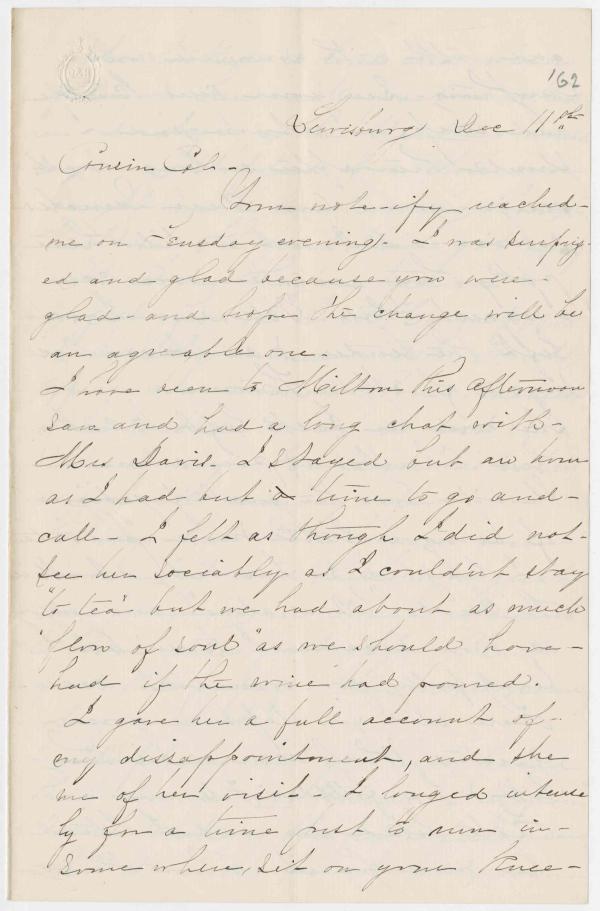 '62
Lewisburg Dec 11th
Cousin Col-
Your note-ify reached-
me on Tuesday evening. I was surpris-
ed and glad because you were-
glad- and hope the change will be
an agreable one.
I have been to Milton this afternoon
saw and had a long chat with-
Mrs Davis. I stayed but an hour
as I had but a time to go and-
call- I felt as though I did not-
see her sociably as I couldn't stay
"to tea" but we had about as much
"flow of soul" as we should have-
had if the wine had poured.
I gave her a full account of-
my dissappointment, and she
me of her visit- I longed intense
ly for a time just to run in-
somewhere, sit on your knee-